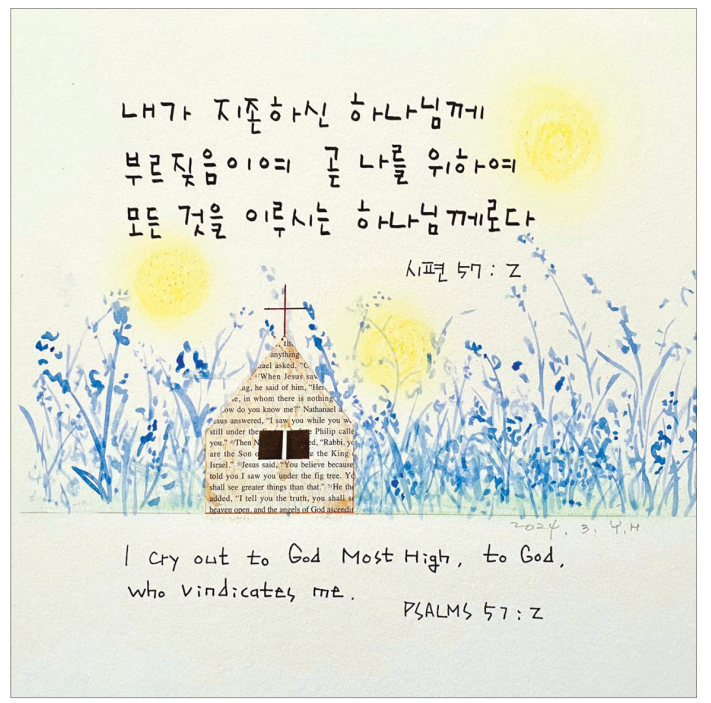 내가 지존하신 하나님께
부르짖음이여 곧 나를 위하여
모든 것을 이루시는 하나님께로다
시편 57:2
th
anything
ael asked. “
“When Jesus saw
ng, he said of him, “Her
e, in whom there is nothing
ow do you know me?” Nathanael a
esus answered, “I saw you while you w
still under the Philip calle
you.” Then N ed, “Rabbi, yo
are the Son o e the King
Israel.” Jesus said, “You believe because
told you I saw you under the fig tree. Yo
shall see greater things than that.” He th
added, “I tell you the truth, you shall se
heaven open, and the angels of God ascendin
2024. 3. Y.H.
I cry out to God Most High, to God,
who vindicates me.
PSALMS 57:2